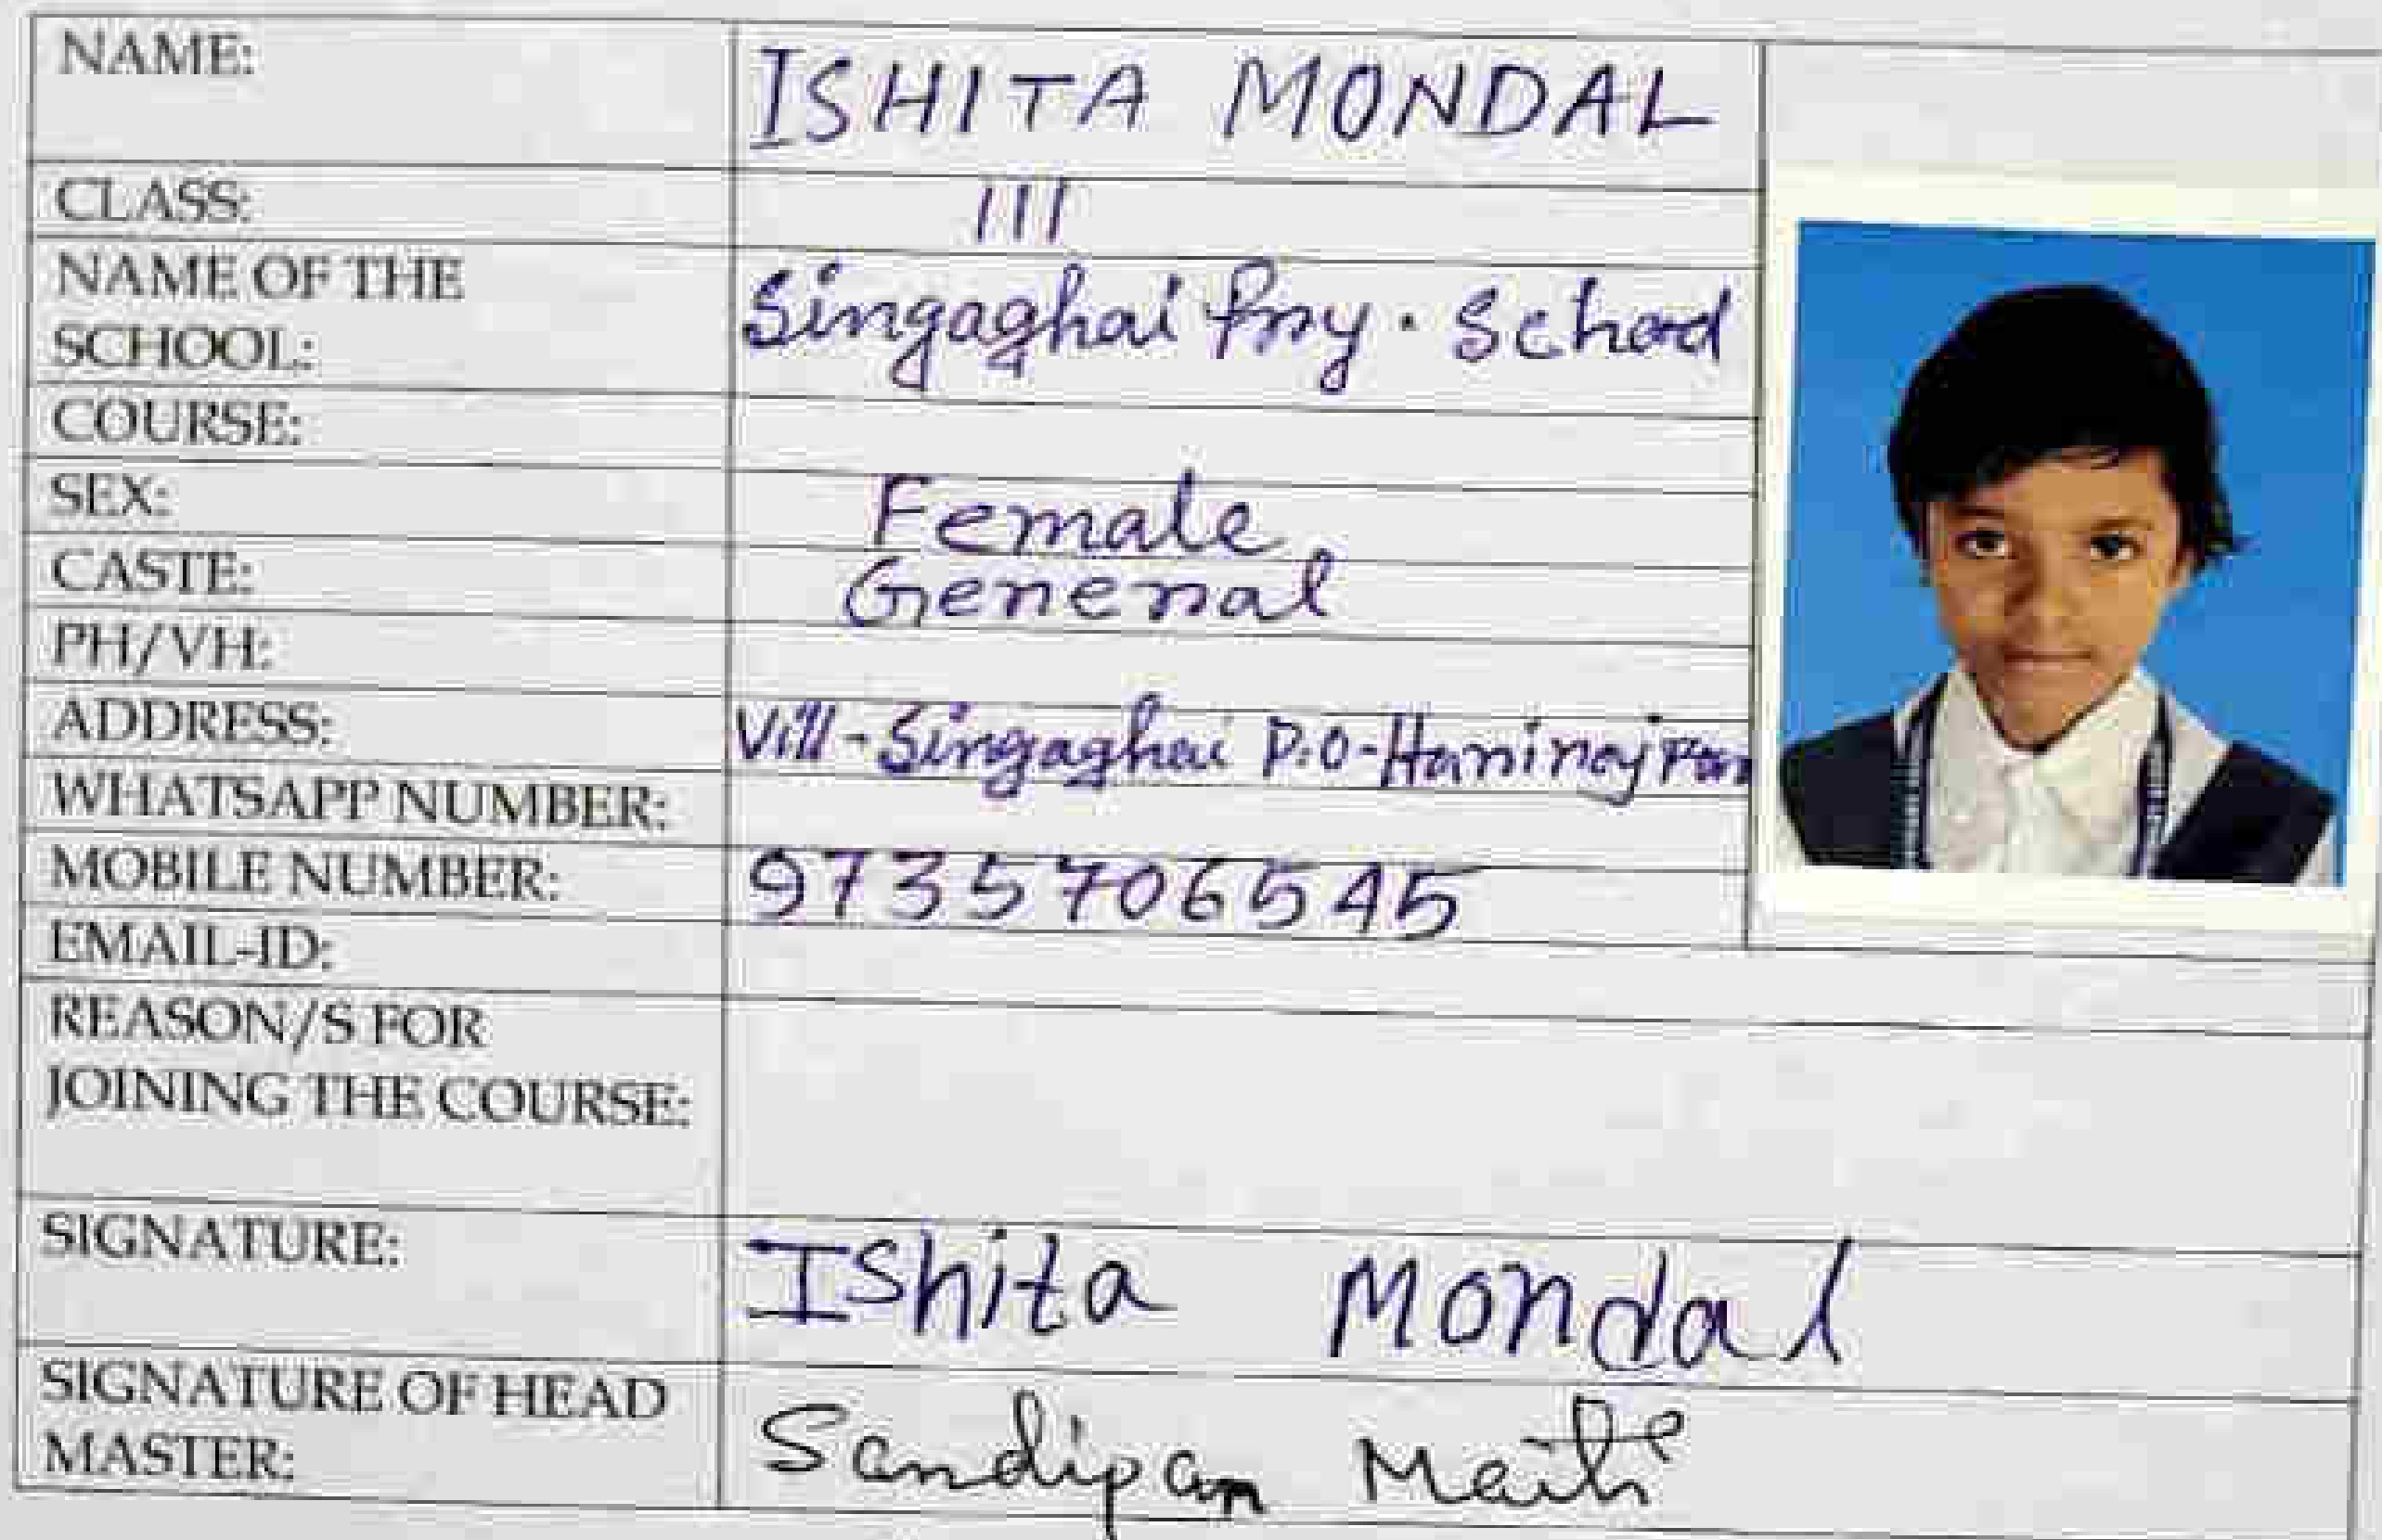 NAME: ISHITA MONDAL
CLASS: III
NAME OF THE
SCHOOL: Singaghai Pry. School
COURSE:
SEX: Female
CASTE: General
PH/VH:
ADDRESS: Vill-Singaghai P.O-Hariraj
WHATSAPP NUMBER:
MOBILE NUMBER: 9735706545
EMAIL-ID:
REASON/S FOR
JOINING THE COURSE:
SIGNATURE: Ishita Mondal
SIGNATURE OF HEAD
MASTER: Sandipan Maiti